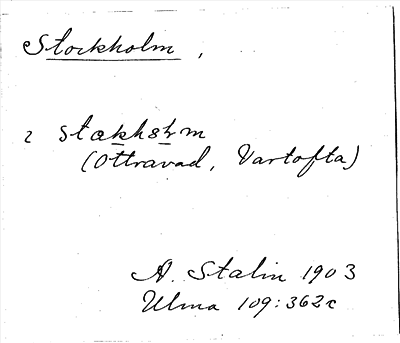 Stockholm,
2 stakhsm
(Ottravad, Vartofta)
A. Stalin 1903
Ulma 109:362c